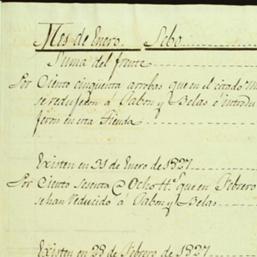 Mes de Enero. Sebo
Suma del frente
Por Ciento cinquenta arrobas que en el citado M
se redugeron a Jabon y Belas é introdu
geron en esta tienda
Existen en 31 de Enero de 1827
Por Ciento sesenta @ Ocho ll.s que en Febrero
se han reducido a Jabon y Belas
Existen en 28 de Febrero de 1827